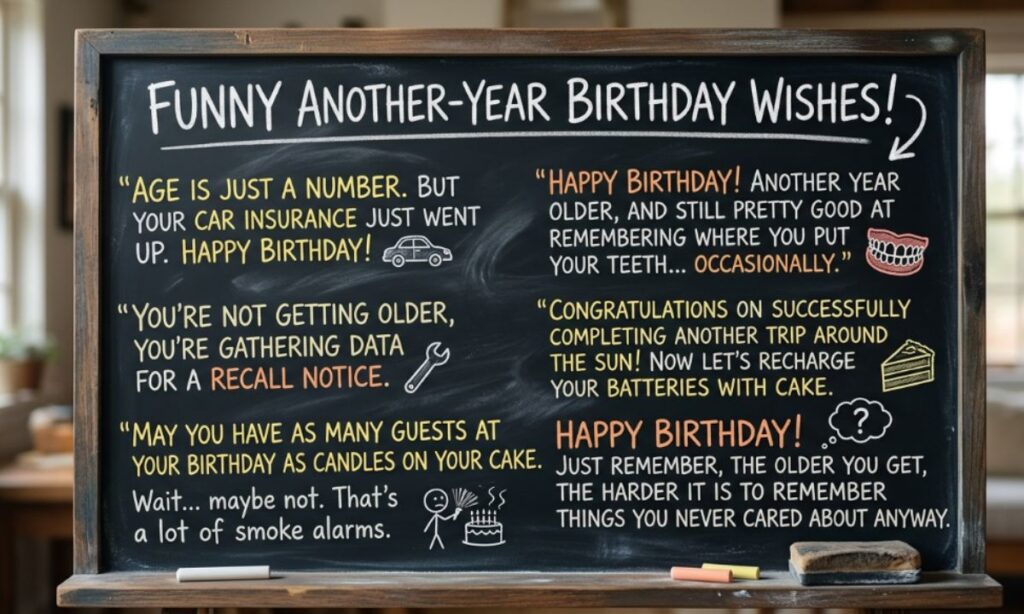 FUNNY ANOTHER-YEAR BIRTHDAY WISHES!
“AGE IS JUST A NUMBER. BUT
YOUR CAR INSURANCE JUST WENT
UP. HAPPY BIRTHDAY!
“YOU'RE NOT GETTING OLDER,
YOU'RE GATHERING DATA
FOR A RECALL NOTICE.
“MAY YOU HAVE AS MANY GUESTS AT
YOUR BIRTHDAY AS CANDLES ON YOUR CAKE.
Wait... maybe not. That's
a lot of smoke alarms.
“HAPPY BIRTHDAY! ANOTHER YEAR
OLDER, AND STILL PRETTY GOOD AT
REMEMBERING WHERE YOU PUT
YOUR TEETH... OCCASIONALLY.”
“CONGRATULATIONS ON SUCCESSFULLY
COMPLETING ANOTHER TRIP AROUND
THE SUN! NOW LET'S RECHARGE
YOUR BATTERIES WITH CAKE.
?
HAPPY BIRTHDAY!
JUST REMEMBER, THE OLDER YOU GET,
THE HARDER IT IS TO REMEMBER
THINGS YOU NEVER CARED ABOUT ANYWAY.